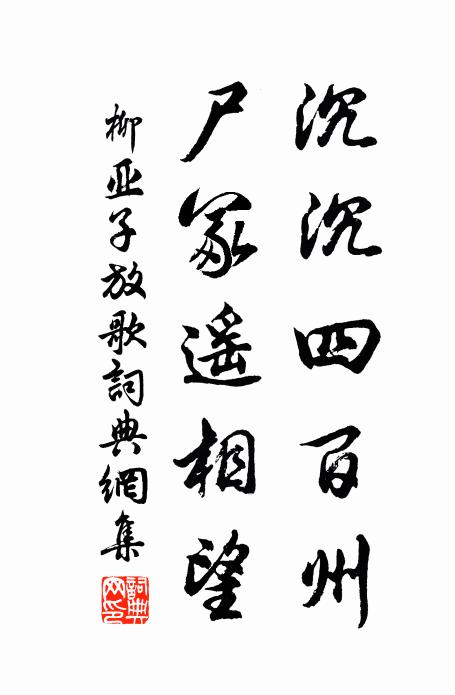 沉沉四百州
尸冢遥相望
柳亚子放歌詞典網集
詞典網印